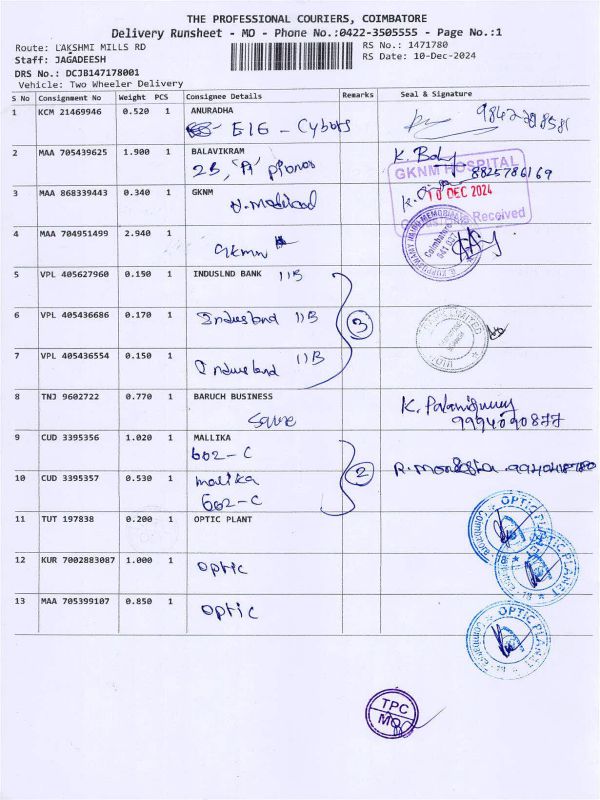 THE PROFESSIONAL COURIERS, COIMBATORE
Delivery Runsheet - MO - Phone No.:0422-3505555 - Page No.:1
Route: LAKSHMI MILLS RD RS No.: 1471780
Staff: JAGADEESH RS Date: 10-Dec-2024
DRS No.: DCJB147178001
Vehicle: Two Wheeler Delivery
S No Consignment No Weight PCS Consignee Details Remarks Seal & Signature
1 KCM 21469946 0.520 1 ANURADHA
E1G - Cybots
2 MAA 705439625 1.900 1 BALAVIKRAM K.
2B, 'A' 8825786169
GKNM HOSPITAL
3 MAA 868339443 0.340 1 GKNM
10 DEC 2024
Received
Coimbatore
641 037
4 MAA 704951499 2.940 1
gknm
5 VPL 405627960 0.150 1 INDUSLND BANK 11B
6 VPL 405436686 0.170 1 Indusland 11B 3
7 VPL 405436554 0.150 1 Indusland 11B
8 TNJ 9602722 0.770 1 BARUCH BUSINESS
Same
9994090877
9 CUD 3395356 1.020 1 MALLIKA
602-C 2
10 CUD 3395357 0.530 1 mallika
602-C
11 TUT 197838 0.200 1 OPTIC PLANT
OPTIC PLANET
12 KUR 7002883087 1.000 1 optic
OPTIC PLANET
13 MAA 705399107 0.850 1 optic
OPTIC PLANET
TPC
MO